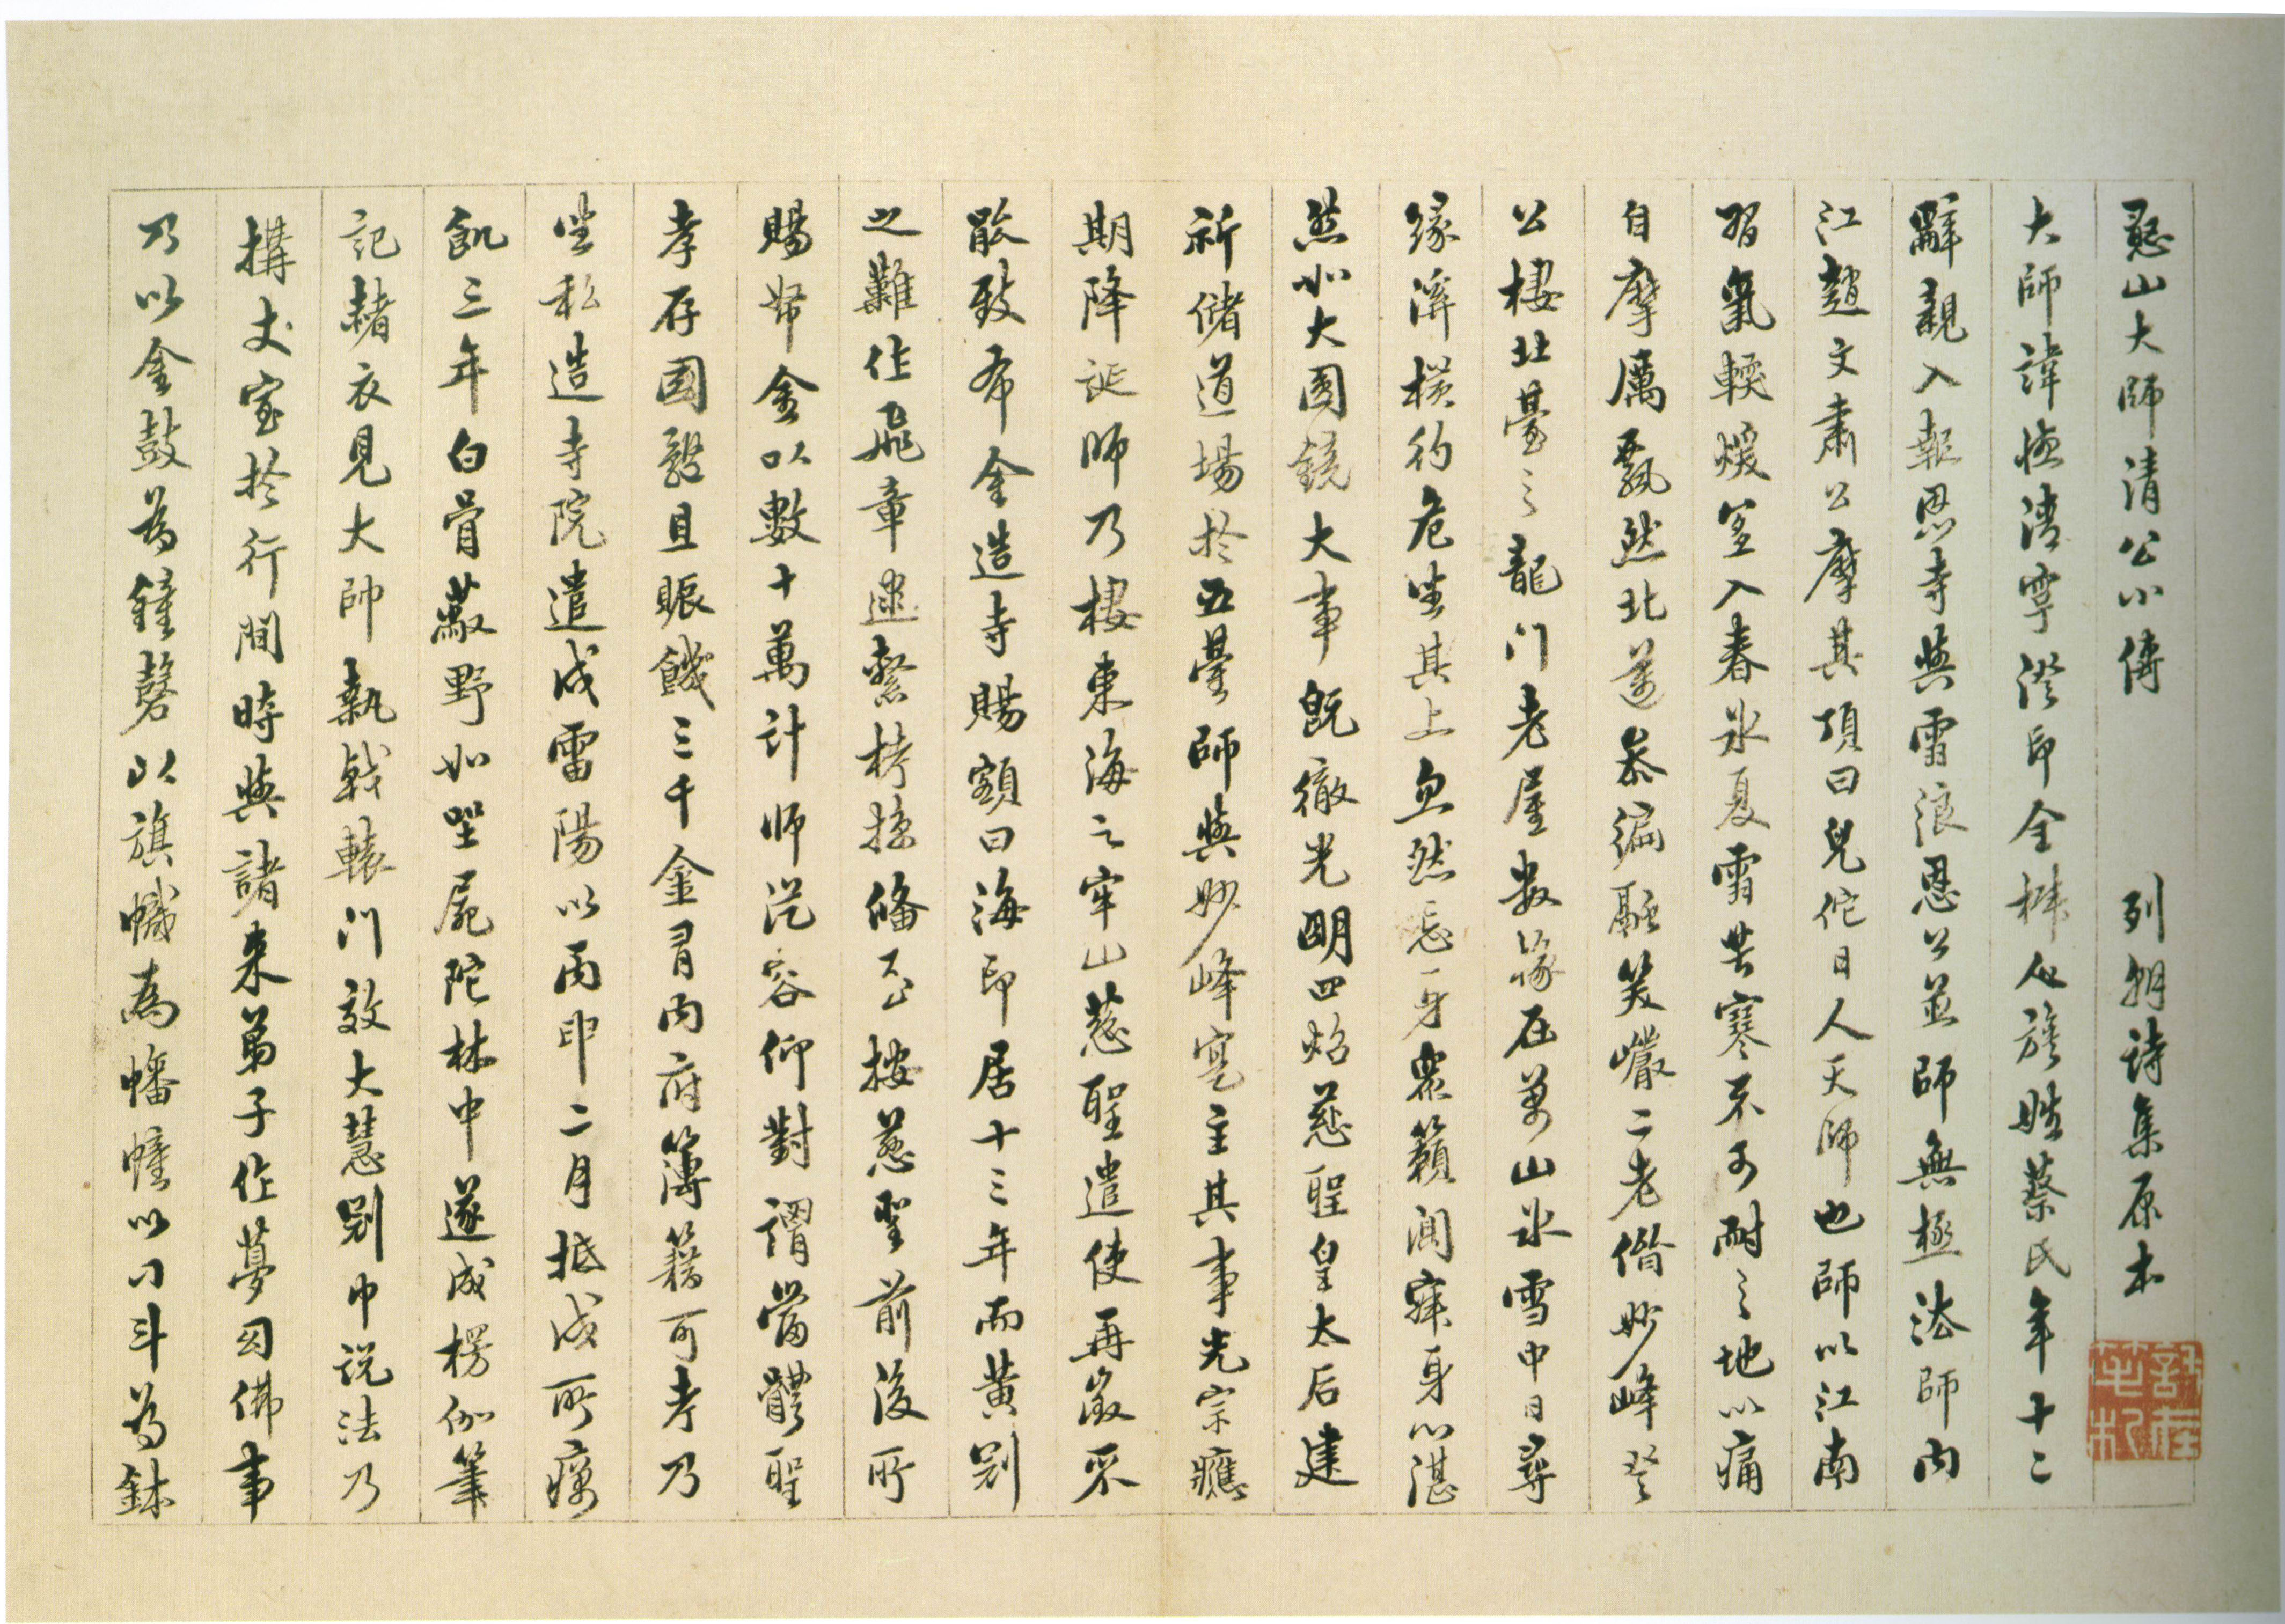 憨山大師清公小傳 列朝詩集原本
大師諱德清字澄印全椒人族姓蔡氏年十二
辭親入報恩寺與雪浪恩公並師無極法師內
江趙文肅公摩其頂曰兒佗日人天師也師以江南
習氣輭煖宜入春氷夏雪苦寒不可耐之地以痛
自摩厲飄然北邁叅徧融笑巖二老偕妙峰登
公棲北臺之龍门老屋数椽在萬山氷雪中日尋
緣溪橫彴危坐其上忽然忘身衆籟闃寂身心湛
然如大圓鏡大事既徹光明四炤慈聖皇太后建
祈儲道場於五臺師與妙峰寔主其事光宗應
期降誕師乃棲東海之牢山慈聖遣使再徵不
能致布金造寺賜額曰海印居十三年而黃冠
之難作飛章逮繫拷掠備至按慈聖前後所
賜帑金以數十萬計师從容仰對謂當體聖
孝存國體且賑饑三千金有內府簿籍可考乃
坐私造寺院遣戍雷陽以丙申二月抵戍所癘
飢三年白骨蔽野如坐屍陀林中遂成楞伽筆
記赭衣見大帥執戟轅门效大慧冠巾説法乃
搆丈室於行間時與諸来弟子作夢幻佛事
乃以金鼓为鐘磬以旗幟為幡幢以刁斗为鉢